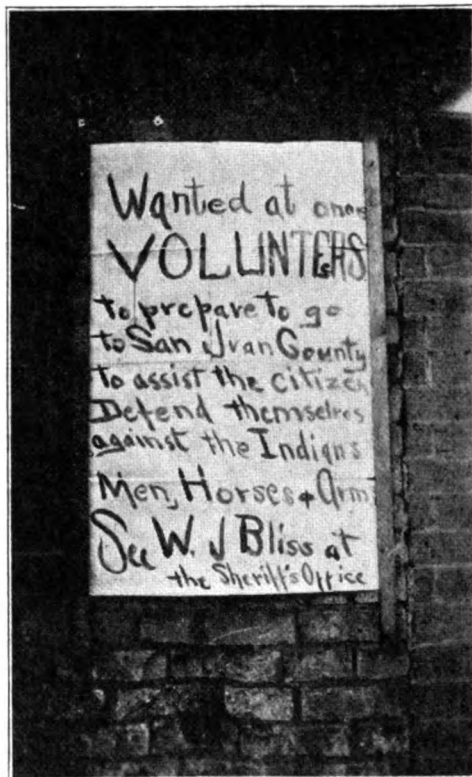 Wanted at once
VOLUNTEERS
to prepare to go
to San Juan County
to assist the citizen
Defend themselves
against the Indians
Men, Horses & Arm
See W. J Bliss at
the Sheriff's Office